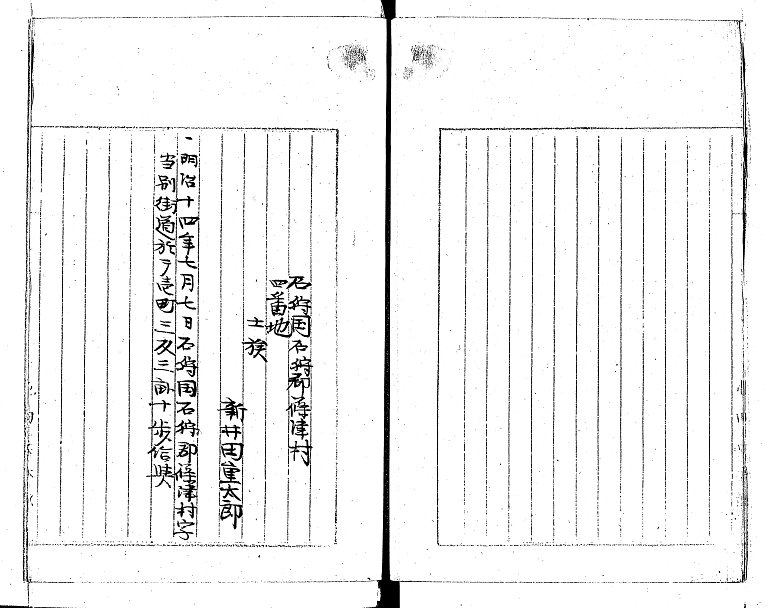 石狩国石狩郡篠津村
四番地
士族
新井田重太郎
、明治十四年七月七日石狩国石狩郡篠津村字
当別街道於テ壱町三反三畝十歩給与